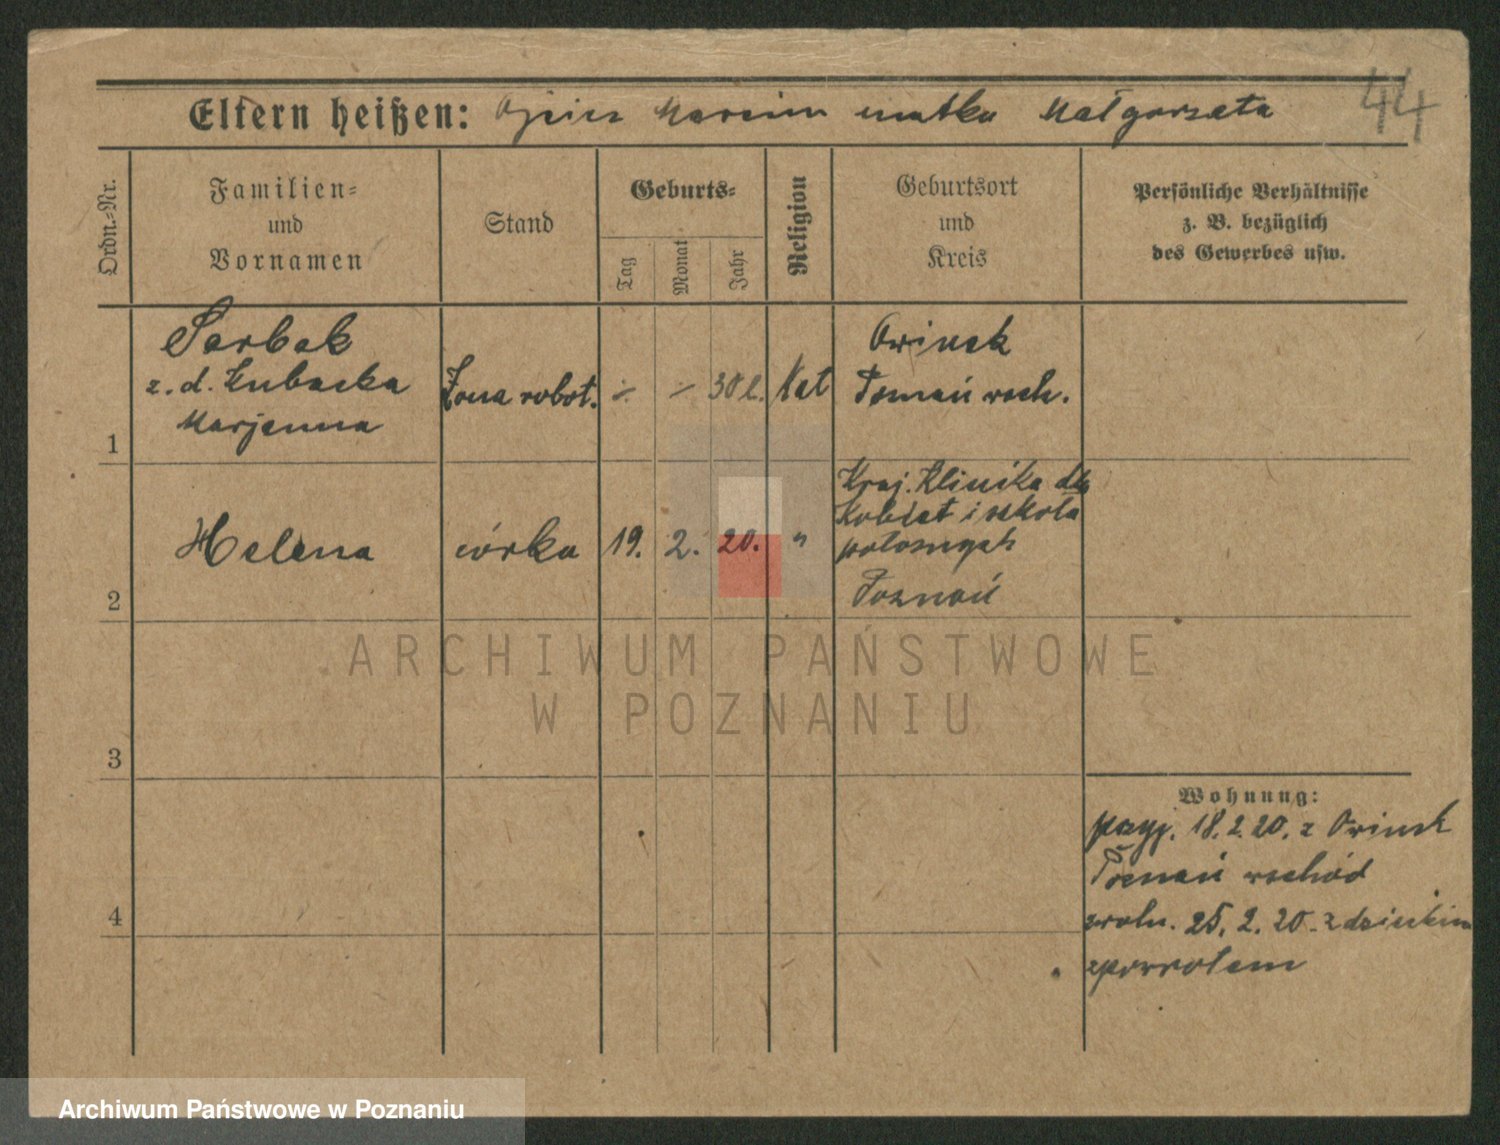 44
Eltern heißen: Ojciec Marcin matka Małgorzata
Ordn.=Nr.
Familien=
und
Vornamen
Stand
Geburts=
Tag
Monat
Jahr
Religion
Geburtsort
und
Kreis
Persönliche Verhältnisse
z. B. bezüglich
des Gewerbes usw.
1
Sarbak
z. d. Kubacka
Marjanna
Żona robot.
30 l.
Kat
Owinsk
Poznań wsch.
2
Helena
córka
19.
2.
20.
"
Kraj. Klinika dla
Kobiet i szkoła
położnych
Poznań
ARCHIWUM PAŃSTWOWE
W POZNANIU
3
4
Wohnung:
przyj. 18. 2. 20. z Owinsk
Poznań wschód
zwoln. 25. 2. 20. z dzieckiem
zpowrotem
Archiwum Państwowe w Poznaniu